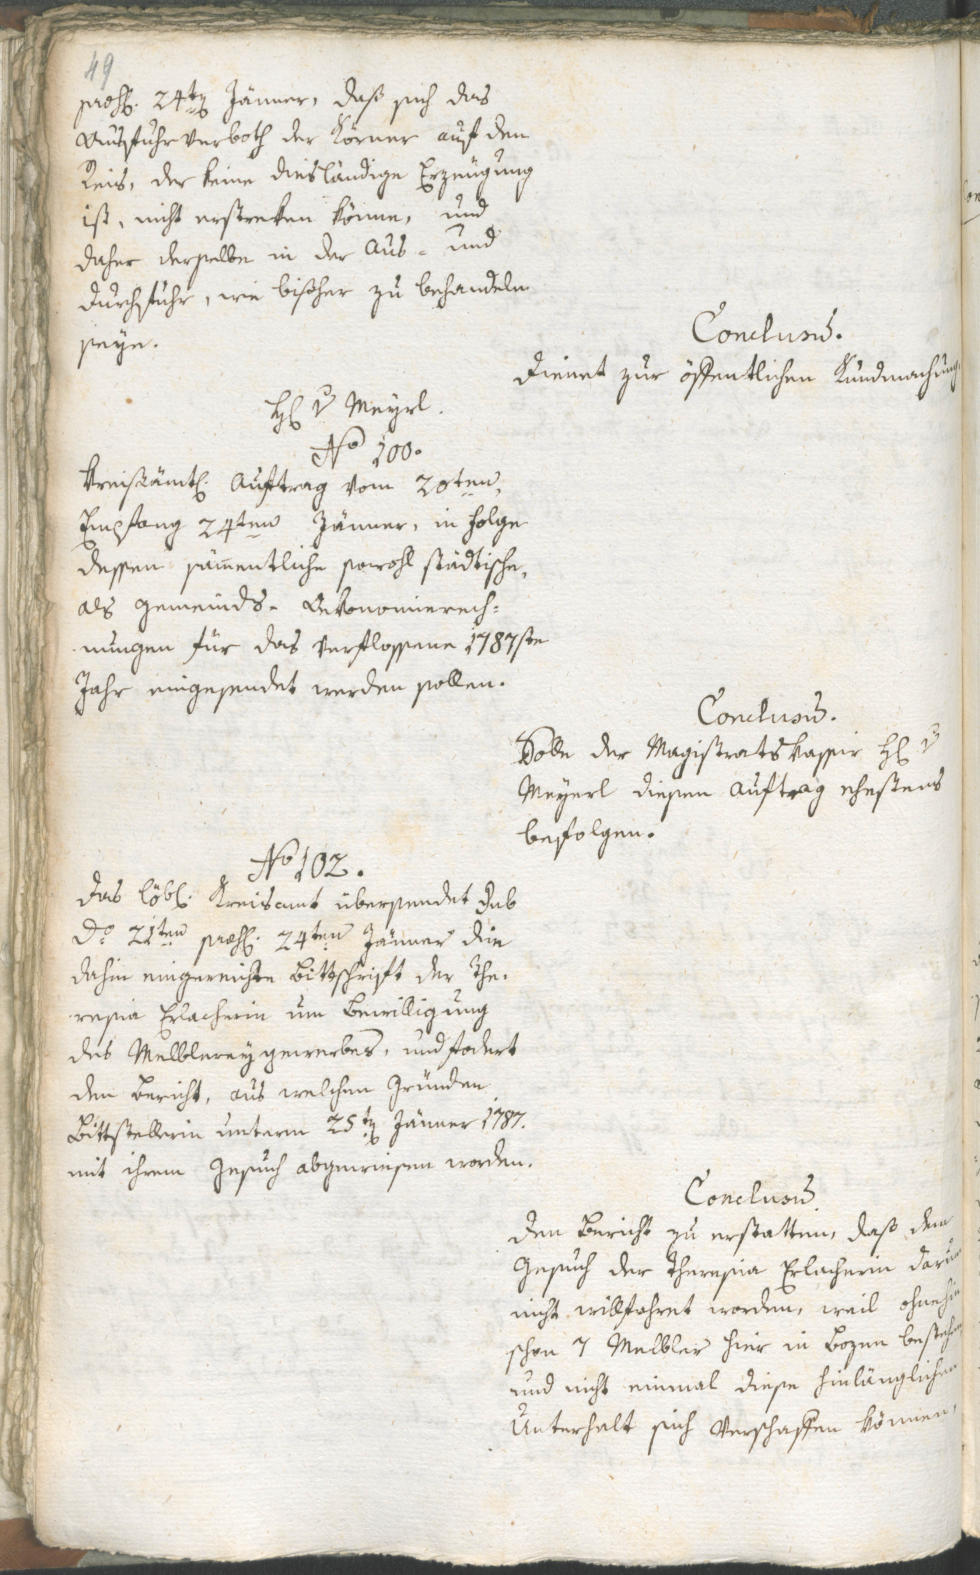 49
praes. 24ten Jänner, daß sich das
Ausfuhrverboth der Körner auf den
Reis, der keine dießländige Erzeugung
ist, nicht erstreken könne, und
daher derselbe in der Aus- und
Durchfuhr, wie bisher zu behandeln
seye.
Conclusum.
Dienet zur öffentlichen Kundmachung.
H. v Meyrl.
No 100.
Kreisämtl. Auftrag vom 20ten,
Empfang 24ten Jänner, in Folge
dessen sämmentliche sowohl städtische,
als Gemeinds- Oekonomierech=
nungen für das verflossene 1787ste
Jahr eingesendet werden sollen.
Conclusum.
Solle der Magistratskassir H. v
Meyerl diesen Auftrag ehestens
befolgen.
No 102.
Das löbl. Kreisamt übersendet sub
Do 21ten praes. 24ten Jänner die
dahin eingereichte Bittschrift der The-
resia Erlacherin um Bewilligung
des Melblereygewerbes, und fodert
den Bericht, aus welchen Gründen
Bittstellerin unterm 25ten Jänner 1787.
mit ihrem Gesuch abgewiesen worden.
Conclusum.
Den Bericht zu erstatten, daß dem
Gesuch der Theresia Erlacherin darum
nicht willfahret worden, weil ohnehin
schon 7 Melbler hier in Bozen bestehen
und nicht einmal diese hinlänglichen
Unterhalt sich verschaffen können,